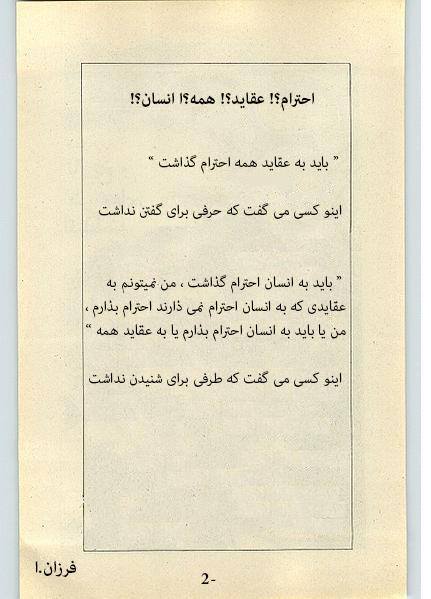 احترام؟! عقاید؟! همه؟! انسان؟!
” باید به عقاید همه احترام گذاشت “
اینو کسی می گفت که حرفی برای گفتن نداشت
” باید به انسان احترام گذاشت ، من نمیتونم به
عقایدی که به انسان احترام نمی ذارند احترام بذارم ،
من یا باید به انسان احترام بذارم یا به عقاید همه “
اینو کسی می گفت که طرفی برای شنیدن نداشت
فرزان.ا
2-